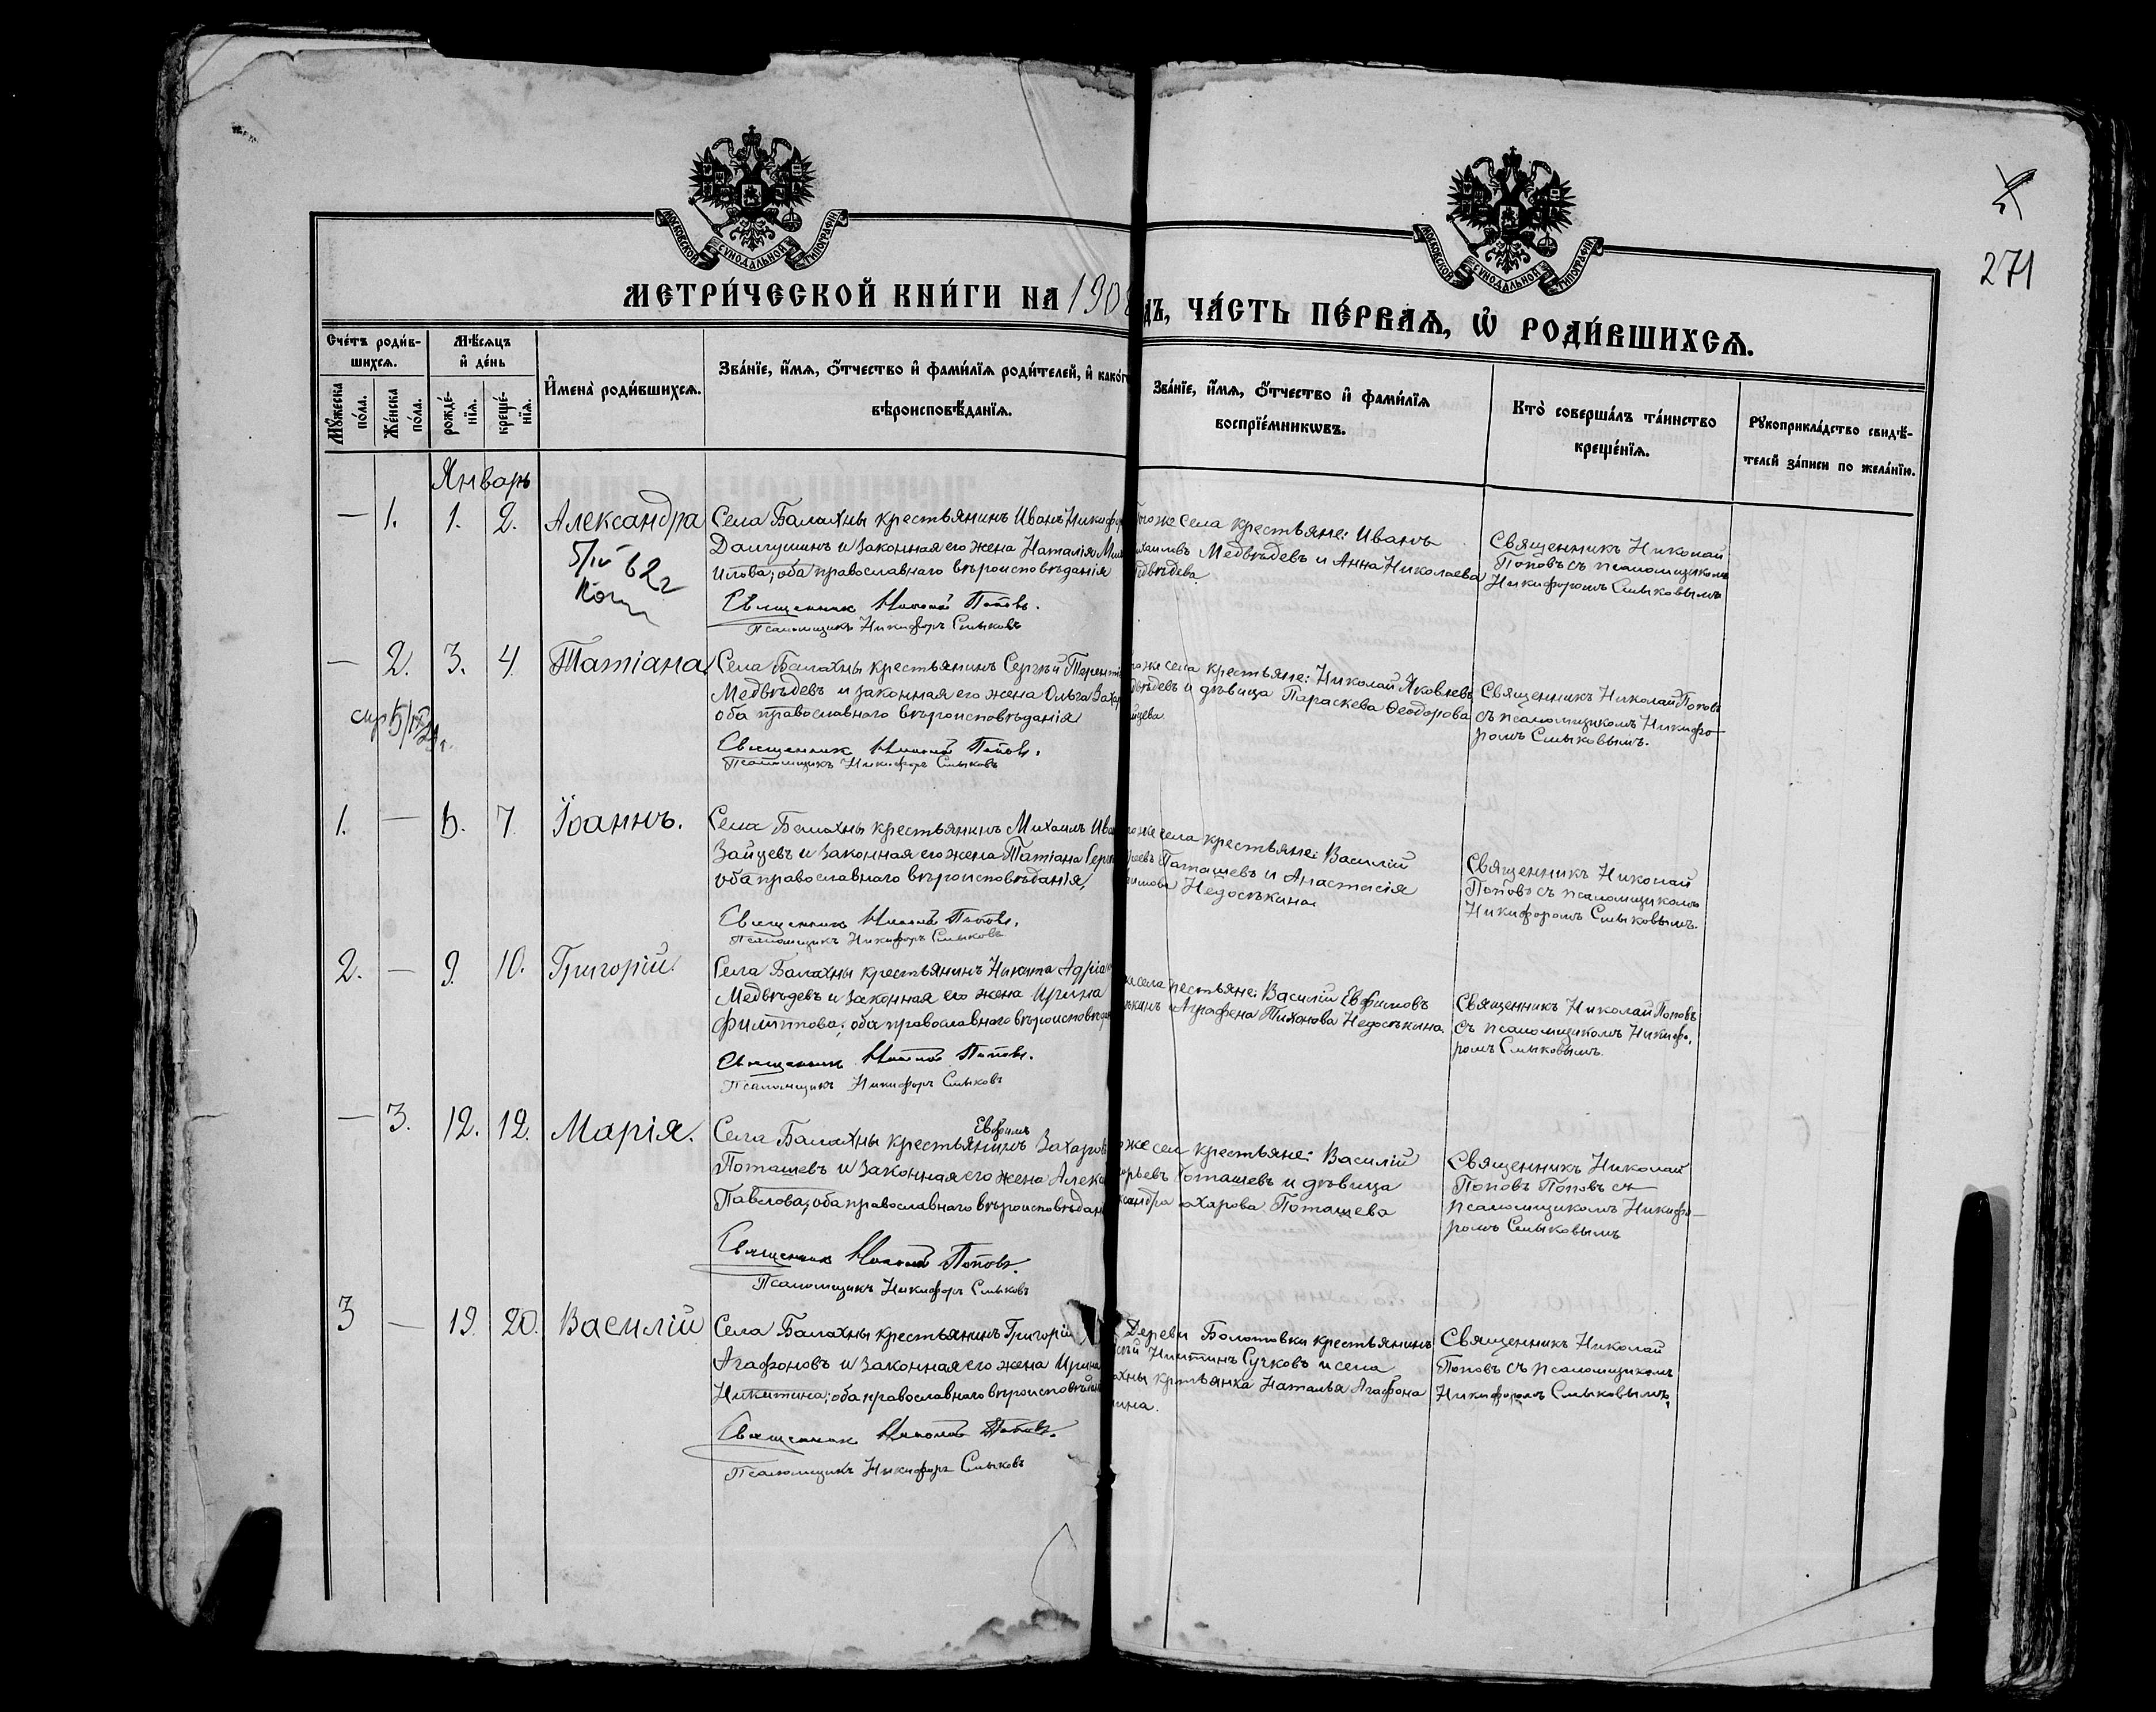 МОСКОВСКОЙ СѴНОДАЛЬНОЙ ТИПОГРАФІИ
МОСКОВСКОЙ СѴНОДАЛЬНОЙ ТИПОГРАФІИ
271
МЕТРИ́ЧЕСКОЙ КНИ́ГИ НА 190
дъ, ЧА́СТЬ ПЕ́РВАѦ, Ѡ҆ РОДИ́ВШИХСѦ.
Сче́тъ роди́в-
шихсѧ.
Мꙋ́жеска
по́ла.
Же́нска
по́ла.
Мѣ́сѧцъ
и҆ де́нь
рожде́-
нїѧ.
креще́-
нїѧ.
И҆мена̀ роди́вшихсѧ.
Зва́нїе, и҆́мѧ, ѻ҆́тчество и҆ фами́лїѧ роди́телей, и҆ како́г
вѣроисповѣ́данїѧ.
Зва́нїе, и҆́мѧ, ѻ҆́тчество и҆ фами́лїѧ
воспрїе́мникѡвъ.
Кто̀ соверша́лъ та́инство
креще́нїѧ.
Рꙋкоприкла́дство свидѣ́-
телей за́писи по жела́нїю.
Январь
— 1. 1. 2. Александра
5/IV 62 г
Села Балахны крестьянинъ Иванъ Никифо
Долгушинъ и законная его жена Наталія Ми
илова; оба православнаго вѣроисповѣданія
Священник Николай Попов.
Псаломщикъ Никифоръ Смыковъ
тогоже села крестьяне: Иванъ
ихаиловъ Медвѣдевъ и Анна Николаева
едвѣдева.
Священникъ Николай
Поповъ съ псаломщикомъ
Никифоромъ Смыковымъ
— 2. 3. 4. Татіана.
Села Балахны крестьянинъ Сергѣй Терентье
Медвѣдевъ и законная его жена Ольга Захар
оба православнаго вѣроисповѣданія
Священник Николай Попов.
Псаломщикъ Никифоръ Смыковъ
гоже села крестьяне: Николай Яковлевъ
двѣдевъ и дѣвица Параскева Ѳеодорова
йцева
Священникъ Николай Поповъ
съ псаломщикомъ Никифо-
ромъ Смыковымъ.
1. — 6. 7. Іоаннъ.
Села Балахны крестьянинъ Михаилъ Ива
Зайцевъ и законная его жена Татіана Серг
оба православнаго вѣроисповѣданія,
Священникъ Николай Попов.
Псаломщикъ Никифоръ Смыковъ
оже села крестьяне: Василій
Поташевъ и Анастасія
Недосѣкина
Священникъ Николай
Поповъ съ псаломщикомъ
Никифоромъ Смыковымъ.
2. — 9. 10. Григорій.
Села Балахны крестьянинъ Никита Адріан
Медвѣдевъ и законная его жена Ирина
Филиппова; оба православнаго вѣроисповѣдан
Священник Николай Попов.
Псаломщикъ Никифоръ Смыковъ
же села крестьяне: Василій Евфимовъ
ѣкинъ и Аграфена Тихонова Недосѣкина.
Священникъ Николай Поповъ
съ псаломщикомъ Никифо-
ромъ Смыковымъ.
— 3. 12. 12. Марія.
Евфимъ
Села Балахны крестьянинъ Захаров
Поташевъ и законная его жена Алекс
Павлова; оба православнаго вѣроисповѣдан
Священник Николай Попов.
Псаломщикъ Никифоръ Смыковъ
оже села крестьяне: Василій
орьевъ Поташевъ и дѣвица
ксандра Захарова Поташева
Священникъ Николай
Поповъ Поповъ съ
псаломщикомъ Никифо-
ромъ Смыковымъ
3 — 19. 20. Василій
Села Балахны крестьянинъ Григорій
Агафоновъ и законная его жена Ирина
Никитина; оба православнаго вѣроисповѣдан
Священник Николай Попов.
Псаломщикъ Никифоръ Смыковъ
Деревни Болотовки крестьянинъ
Никитинъ Сучковъ и села
ахны крестьянка Наталья Агафона
ина.
Священникъ Николай
Поповъ съ псаломщикомъ
Никифоромъ Смыковымъ.